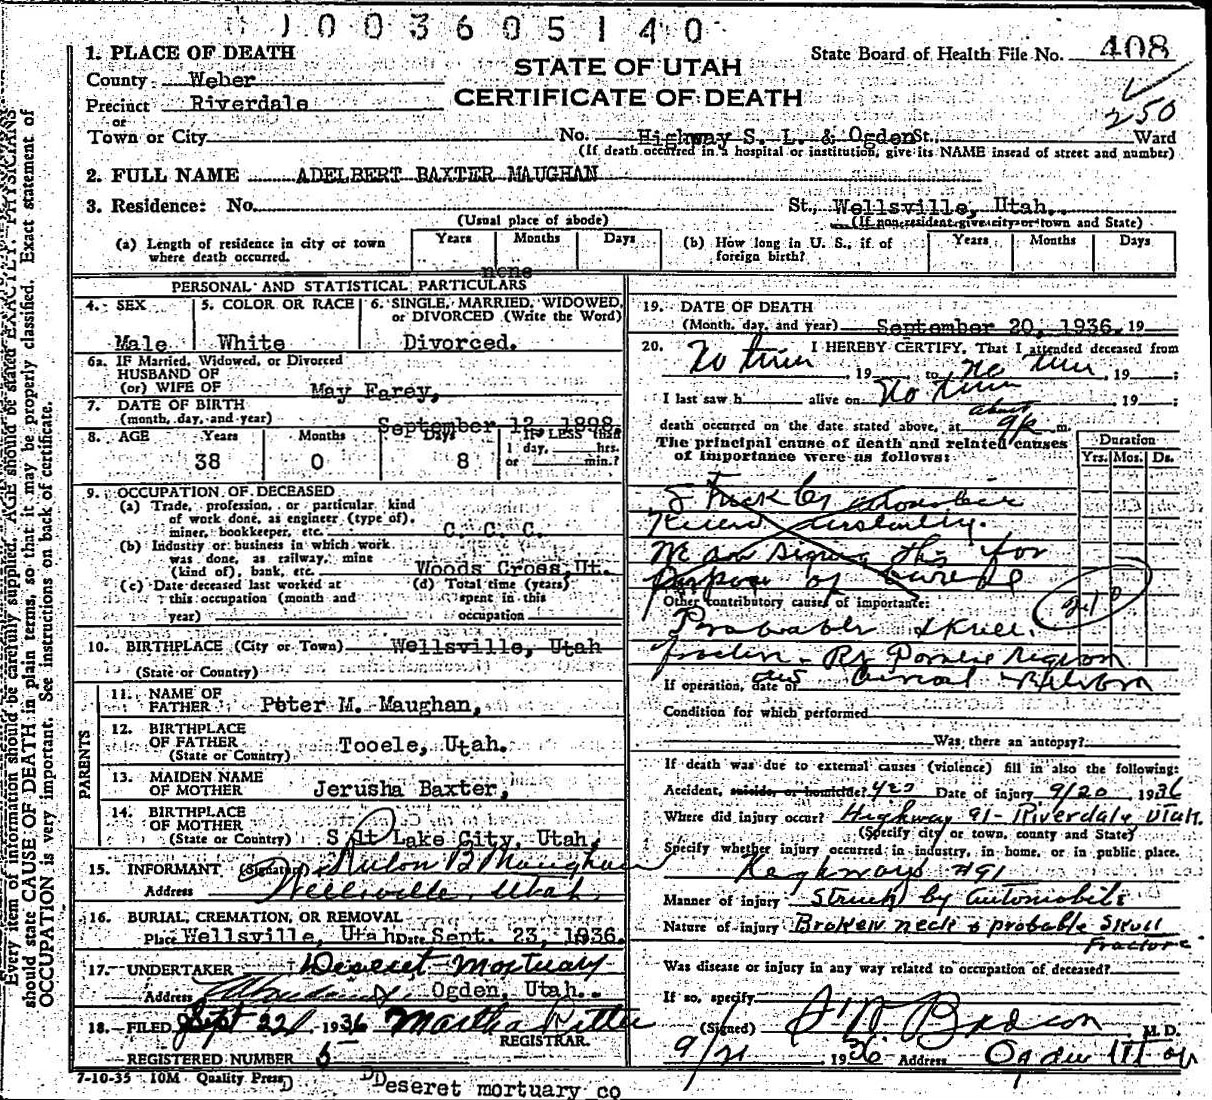 1003605140
1. PLACE OF DEATH
State Board of Health File No. 408
County Weber
STATE OF UTAH
250
Precinct Riverdale
CERTIFICATE OF DEATH
or
Town or City No. Highway S. L. & Ogden St. Ward
(If death occurred in a hospital or institution, give its NAME insead of street and number)
2. FULL NAME ADELBERT BAXTER MAUGHAN
3. Residence: No. St., Wellsville, Utah.
(Usual place of abode) (If nonresident give city or town and State)
(a) Length of residence in city or town where death occurred. Years Months Days
none
(b) How long in U. S., if of foreign birth? Years Months Days
PERSONAL AND STATISTICAL PARTICULARS
4. SEX
Male
5. COLOR OR RACE
White
6. SINGLE, MARRIED, WIDOWED, or DIVORCED (Write the Word)
Divorced.
6a. IF Married, Widowed, or Divorced
HUSBAND OF
(or) WIFE OF May Farey,
7. DATE OF BIRTH
(month, day, and year) September 12, 1898.
8. AGE Years Months Days If LESS than
1 day, hrs.
or min.?
38 0 8
9. OCCUPATION OF DECEASED
(a) Trade, profession, or particular kind
of work done, as engineer (type of),
miner, bookkeeper, etc. C. C. C.
(b) Industry or business in which work
was done, as railway, mine
(kind of), bank, etc. Woods Cross, Ut.
(c) Date deceased last worked at
this occupation (month and
year)
(d) Total time (years)
spent in this
occupation
10. BIRTHPLACE (City or Town) Wellsville, Utah
(State or Country)
PARENTS
11. NAME OF
FATHER Peter M. Maughan,
12. BIRTHPLACE
OF FATHER Tooele, Utah.
(State or Country)
13. MAIDEN NAME
OF MOTHER Jerusha Baxter,
14. BIRTHPLACE
OF MOTHER
(State or Country) S lt Lake City, Utah,
15. INFORMANT (Signature) Rulon B Maughan
Address Wellsville, Utah.
16. BURIAL, CREMATION, OR REMOVAL
Place Wellsville, Utah Date Sept. 23, 1936.
17. UNDERTAKER Deseret Mortuary
Address Ogden, Utah.
18. FILED Sept 22, 1936 Martha Ritter
REGISTRAR.
REGISTERED NUMBER 5
7-10-35 10M Quality Press
Deseret mortuary co
19. DATE OF DEATH
(Month, day, and year) September 20, 1936. 19
20. I HEREBY CERTIFY, That I attended deceased from
No time 19 to No time, 19 ;
I last saw h alive on No time 19 ;
about
death occurred on the date stated above, at 9 P. m.
The principal cause of death and related causes
of importance were as follows:
Duration
Yrs. Mos. Ds.
Struck by
Killed instantly.
signing this for
purpose of burial
Other contributory causes of importance:
210
Probable skull
If operation, date of
Condition for which performed
Was there an autopsy?
If death was due to external causes (violence) fill in also the following:
Accident, suicide, or homicide? yes Date of injury 9/20, 1936
Where did injury occur? Highway 91-Riverdale Utah.
(Specify city or town, county and State)
Specify whether injury occurred in industry, in home, or in public place.
Highways #91
Manner of injury Struck by Automobile
Nature of injury Broken neck & probable Skull
fracture
Was disease or injury in any way related to occupation of deceased?
If so, specify
(Signed) M. D.
9/21, 1936 Address Ogden Utah
Every item of information should be carefully supplied. AGE should be stated EXACTLY. PHYSICIANS
should state CAUSE OF DEATH in plain terms, so that it may be properly classified. Exact statement of
OCCUPATION is very important. See instructions on back of certificate.